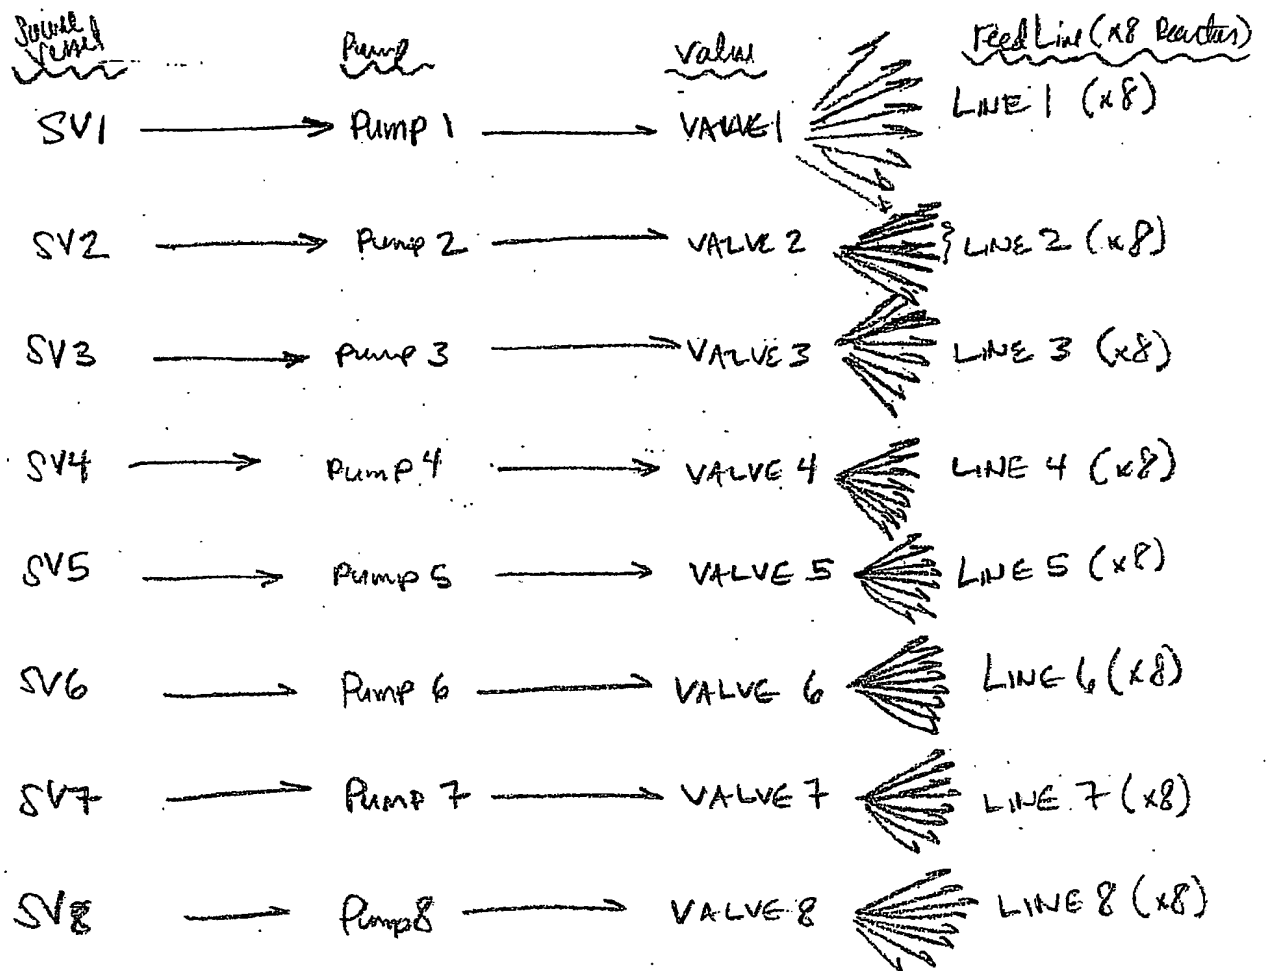 Source Vessel Pump Valve Feed Line (x8 Reactors)
SV1 Pump 1 VALVE1 LINE 1 (x8)
SV2 Pump 2 VALVE 2 LINE 2 (x8)
SV3 Pump 3 VALVE 3 LINE 3 (x8)
SV4 Pump 4 VALVE 4 LINE 4 (x8)
SV5 Pump 5 VALVE 5 LINE 5 (x8)
SV6 Pump 6 VALVE 6 LINE 6 (x8)
SV7 Pump 7 VALVE 7 LINE 7 (x8)
SV8 Pump 8 VALVE 8 LINE 8 (x8)